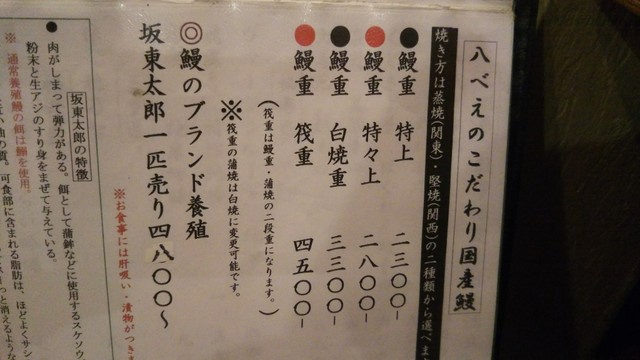 八べえのこだわり国産鰻
焼き方は蒸焼(関東)・堅焼(関西)の二種類から選べま
●鰻重 特上 二三〇〇-
●鰻重 特々上 二八〇〇-
●鰻重 白焼重 三三〇〇-
●鰻重 筏重 四五〇〇-
(筏重は鰻重・蒲焼の二段重になります。)
※筏重の蒲焼は白焼に変更可能です。
◎鰻のブランド養殖
坂東太郎一匹売り四八〇〇～
※お食事には肝吸い・漬物がつきま
坂東太郎の特徴
●肉がしまって弾力がある。餌として蒲鉾などに使用するスケソウ
粉末と生アジのすり身をまぜて与えている。
※通常養殖鰻の餌は鰯を使用。
の質、可食部に含まれる脂肪は、ほどよくサシ
消えるような